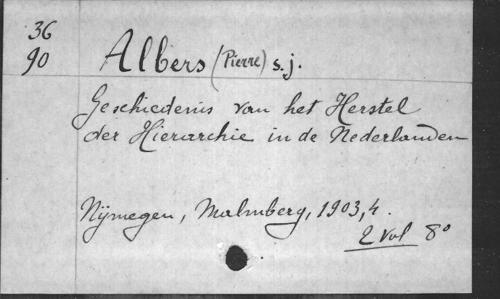 36
90
Albers (Pierre) s.j.
Geschiedenis van het Herstel
der Hierarchie in de Nederlanden
Nijmegen, Malmberg, 1903,4.
2 vol 8º